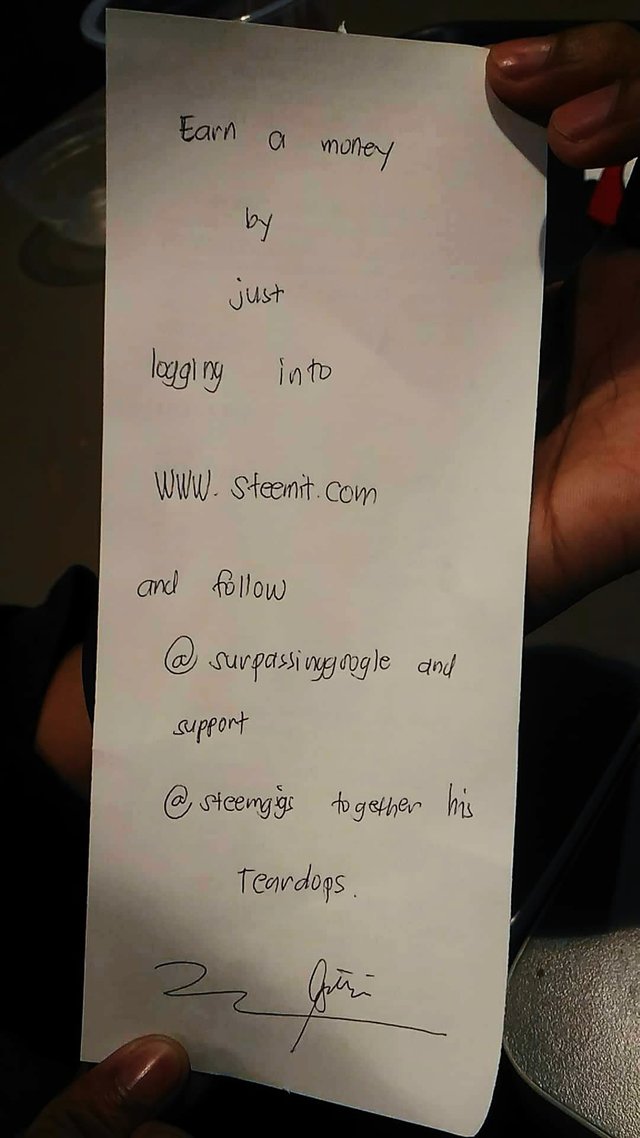 Earn a money
by
just
logging into
WWW. steemit.com
and follow
@surpassinggoogle and
support
@steemgigs together his
Teardops.